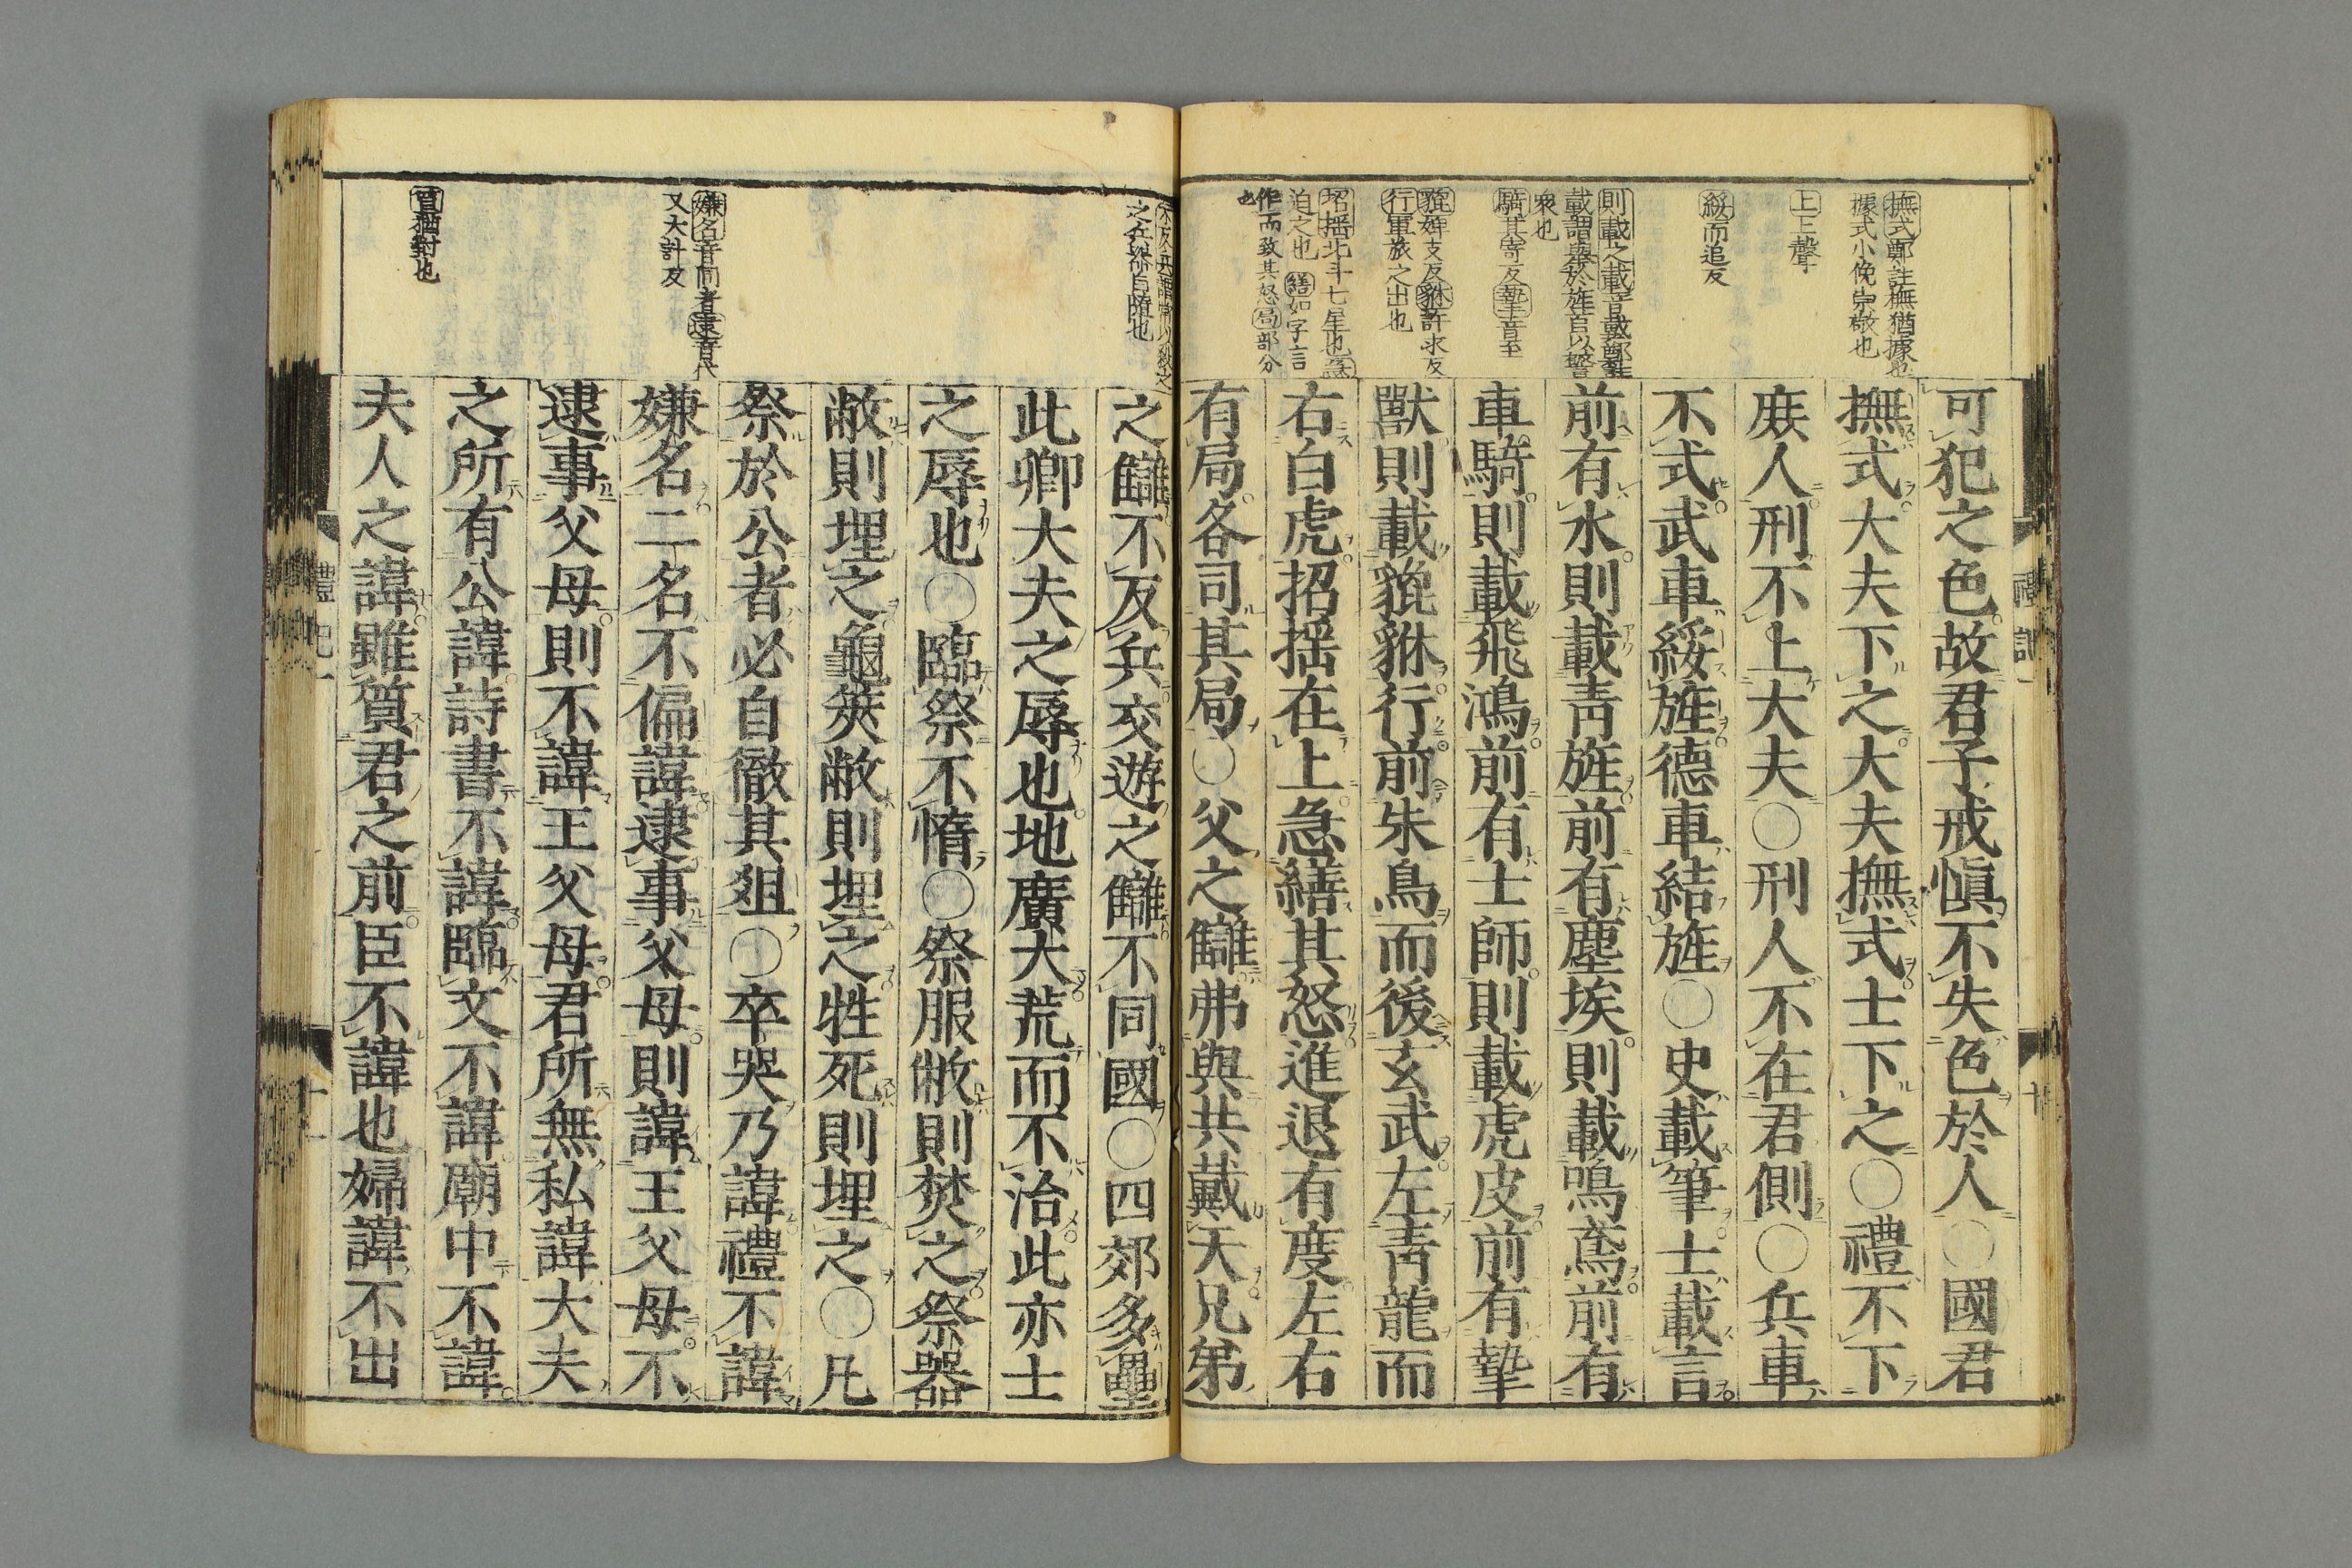 撫式鄭註撫猶據也
據式小俛崇敬也
上上聲
綏而追反
則載之載音戴鄭註
載謂舉於旌首以警
衆也
騎其寄反摯音至
貔婢支反貅許求反
行軍旅之出也
招搖北斗七星也急
迫之也繕如字言
作而致其怒局部分
也
可犯之色故君子戒愼不失色於人○國君
撫式大夫下之大夫撫式士下之○禮不下
庶人刑不上大夫○刑人不在君側○兵車
不式武車綏旌德車結旌○史載筆士載言
前有水則載靑旌前有塵埃則載鳴鳶前有
車騎則載飛鴻前有士師則載虎皮前有摯
獸則載貔貅行前朱鳥而後玄武左靑龍而
右白虎招搖在上急繕其怒進退有度左右
有局各司其局○父之讎弗與共戴天兄弟
禮記一
十
之兵器自隨也
嫌名音同者逮音代
又大計反
質猶對也
之讎不反兵交遊之讎不同國○四郊多壘
此卿大夫之辱也地廣大荒而不治此亦士
之辱也○臨祭不惰○祭服敝則焚之祭器
敝則埋之龜筴敝則埋之牲死則埋之○凡
祭於公者必自徹其俎○卒哭乃諱禮不諱
嫌名二名不偏諱逮事父母則諱王父母不
逮事父母則不諱王父母君所無私諱大夫
之所有公諱詩書不諱臨文不諱廟中不諱
夫人之諱雖質君之前臣不諱也婦諱不出
禮記一
十一